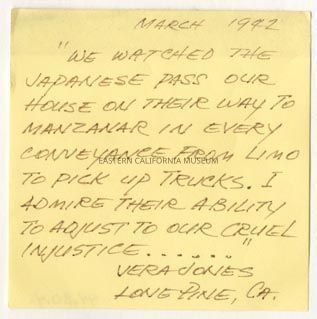 MARCH 1942
"WE WATCHED THE
JAPANESE PASS OUR
HOUSE ON THEIR WAY TO
MANZANAR IN EVERY
CONVEYANCE FROM LIMO
EASTERN CALIFORNIA MUSEUM
TO PICK UP TRUCKS. I
ADMIRE THEIR ABILITY
TO ADJUST TO OUR CRUEL
INJUSTICE......"
VERA JONES
LONE PINE, CA.